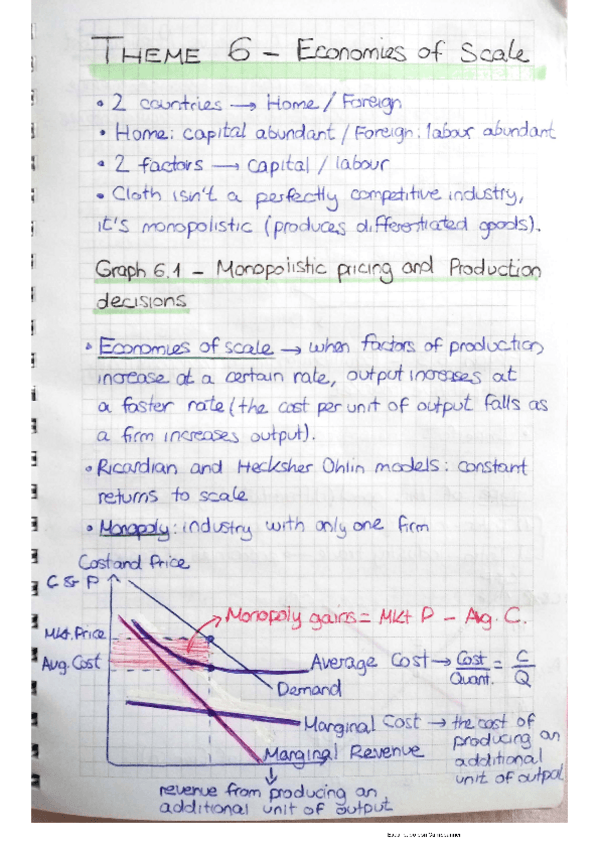 THEME 6 – Economies of Scale
• 2 countries → Home / Foreign
• Home: capital abundant / Foreign: labour abundant
• 2 factors → capital / labour
• Cloth isn't a perfectly competitive industry,
it's monopolistic (produces differentiated goods).
Graph 6.1 – Monopolistic pricing and Production
decisions
• Economies of scale → when factors of production
increase at a certain rate, output increases at
a faster rate (the cost per unit of output falls as
a firm increases output).
• Ricardian and Hecksher Ohlin models: constant
returns to scale
• Monopoly: industry with only one firm
Cost and Price
C & P
Monopoly gains = Mkt P – Avg. C.
Mkt. Price
Avg. Cost
Average Cost → Cost/Quant. = C/Q
Demand
Marginal Cost → the cost of
producing an
additional
unit of output
Marginal Revenue
revenue from producing an
additional unit of output